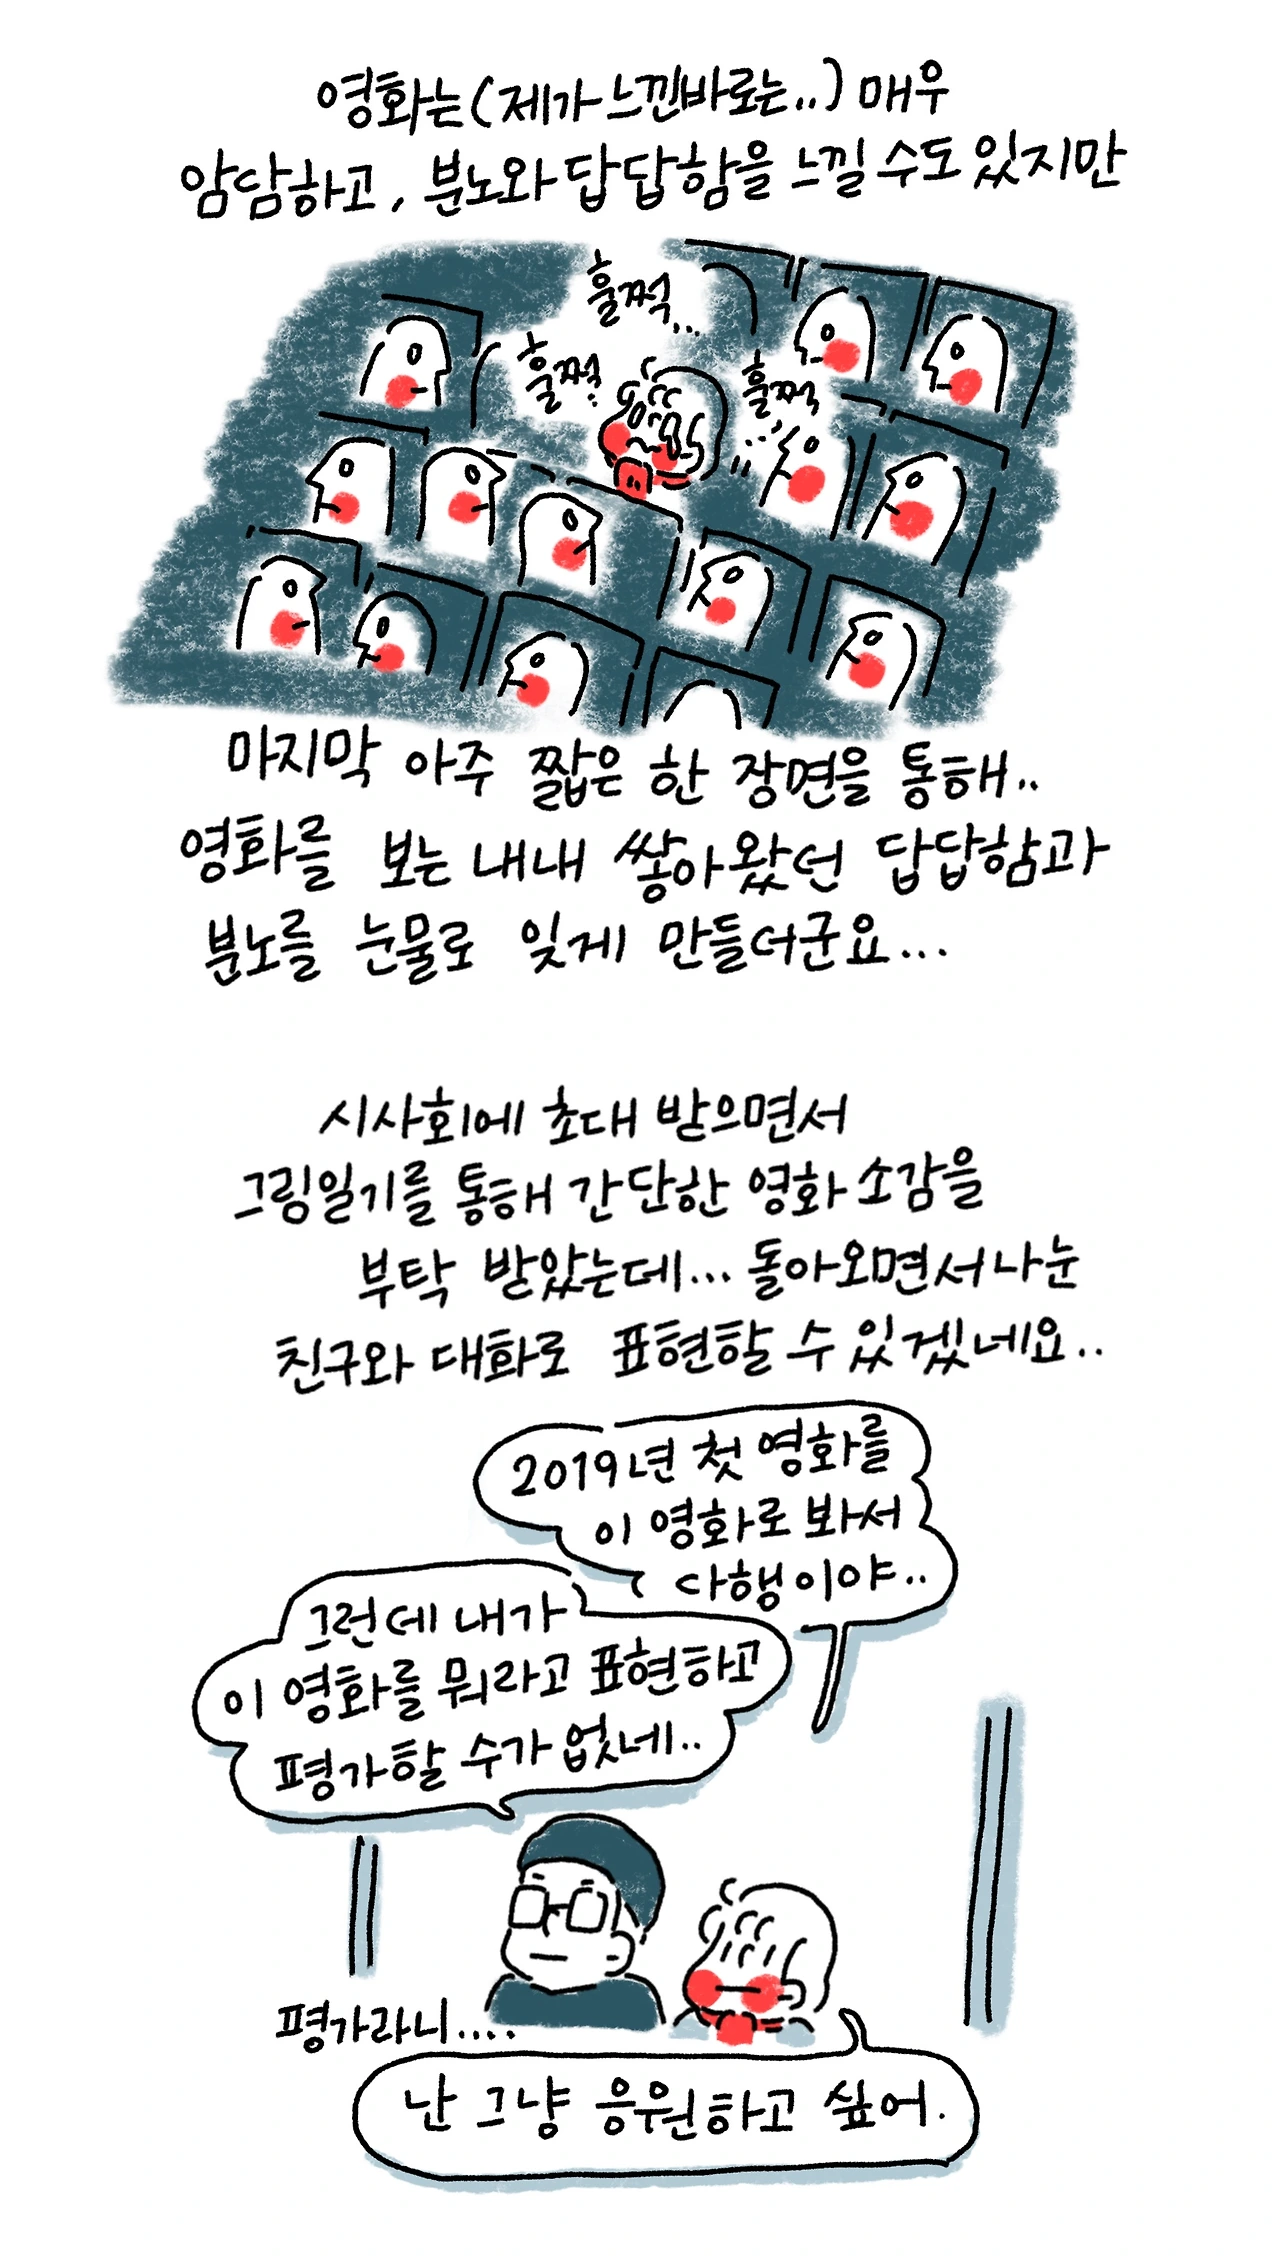 영화는(제가 느낀바로는..) 매우
암담하고, 분노와 답답함을 느낄 수도 있지만
훌쩍...
훌쩍..
훌쩍...
마지막 아주 짧은 한 장면을 통해..
영화를 보는 내내 쌓아왔던 답답함과
분노를 눈물로 잊게 만들더군요...
시사회에 초대 받으면서
그림일기를 통해 간단한 영화 소감을
부탁 받았는데... 돌아오면서 나눈
친구와 대화로 표현할 수 있겠네요..
2019년 첫 영화를
이 영화로 봐서
다행이야..
그런데 내가
이 영화를 뭐라고 표현하고
평가할 수가 없네..
평가라니....
난 그냥 응원하고 싶어.